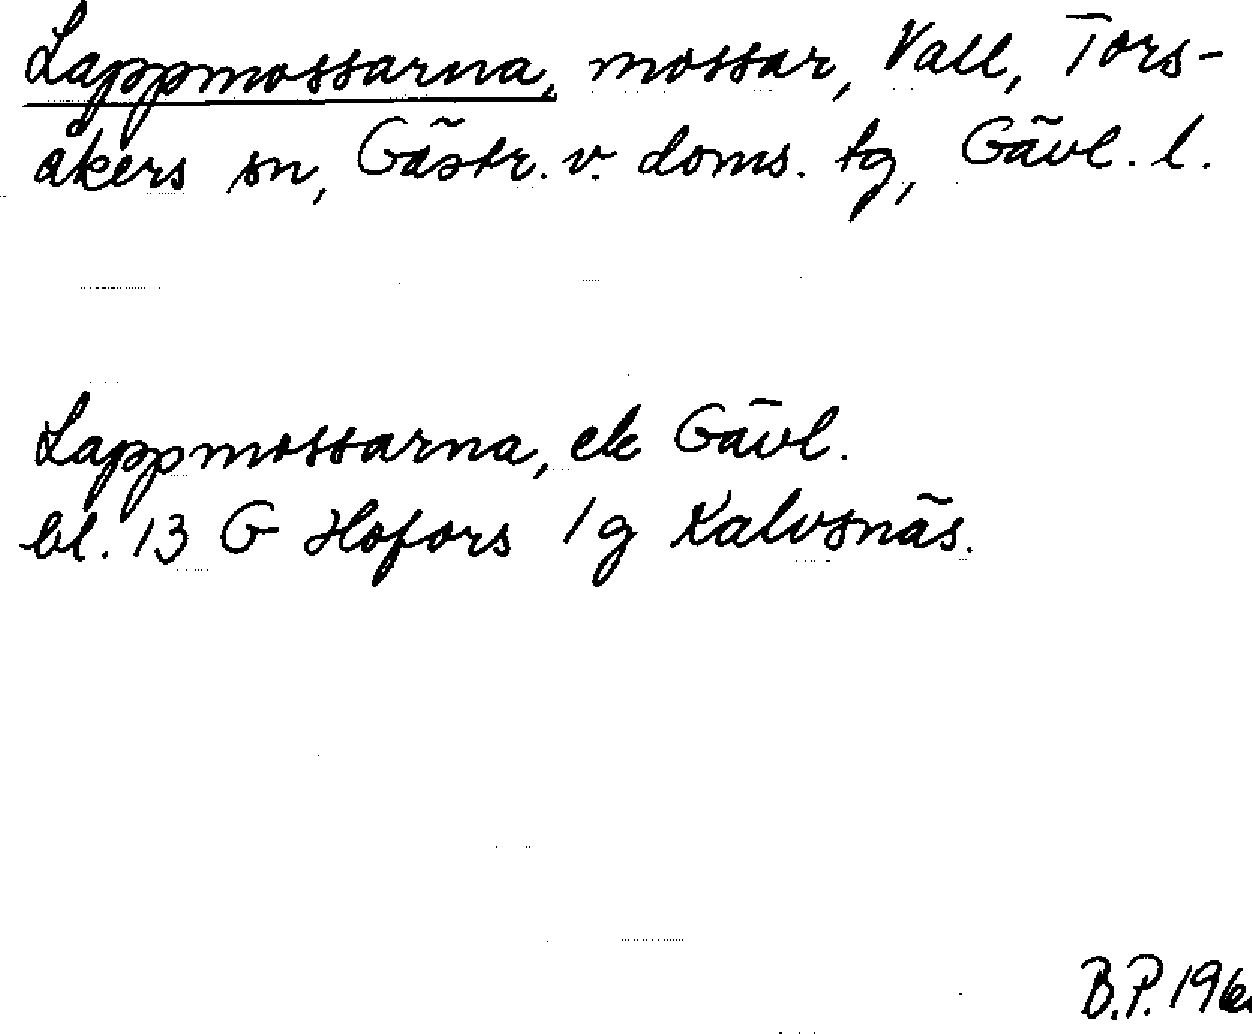 Lappmossarna, mossar, Vall, Tors-
åkers sn, Gästr. v. doms. tg, Gävl. l.
Lappmossarna, ek Gävl.
bl. 13 G Hofors 1 g Kalvsnäs.
B.P.